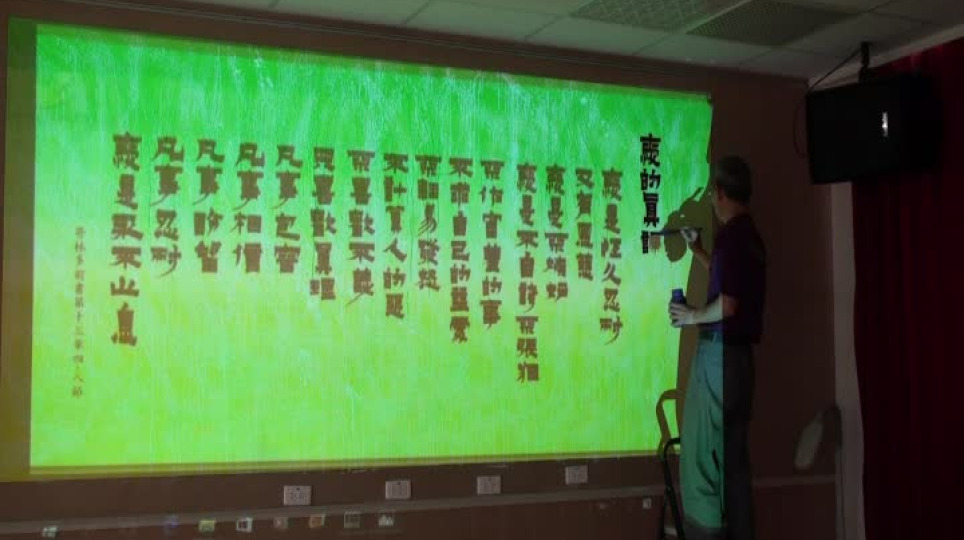 愛的真諦
愛是恆久忍耐
又有恩慈
愛是不嫉妒
愛是不自誇不張狂
不作害羞的事
不求自己的益處
不輕易發怒
不計算人的惡
不喜歡不義
只喜歡真理
凡事包容
凡事相信
凡事盼望
凡事忍耐
愛是永不止息
哥林多前書第十三章四~八節